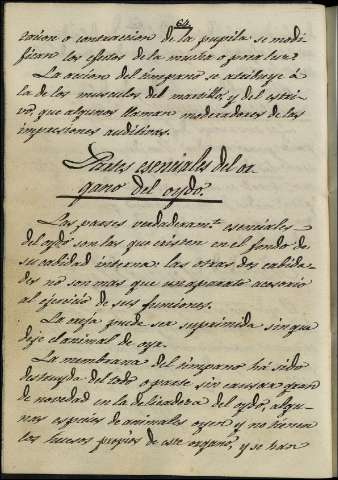 64.
tacion o contraccion de la pupila se modi-
fican los efectos de la mucha o poca luz.
La accion del timpano se atribuye á
la de los musculos del martillo, y del estri-
vo, que algunos llaman moderadores de las
impresiones auditivas.
Partes esenciales del or-
gano del oydo.
Las partes verdaderamte. esenciales
del oydo son las que existen en el fondo de
su cabidad interna: las otras dos cabida-
des no son mas que un aparato acesorio
al egercicio de sus funciones.
La oreja puede ser suprimida sin que
deje el animal de oyr.
La membrana del timpano há sido
destruyda del todo o parte sin causar gran
de novedad en la delicadeza del oydo, algu-
nas especies de animales oyen y no tienen
los huesos propios de este organo, y se han